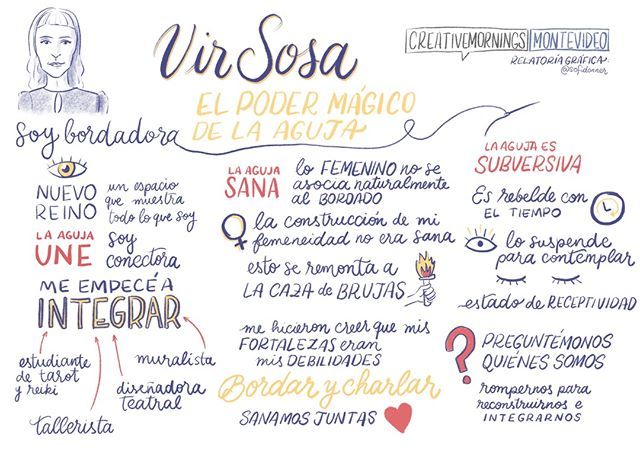 Vir Sosa
EL PODER MÁGICO
DE LA AGUJA
CREATIVEMORNINGS MONTEVIDEO
RELATORÍA GRÁFICA
@sofidonner
Soy bordadora
NUEVO
REINO
un espacio
que muestra
todo lo que soy
LA AGUJA
UNE
soy
conectora
ME EMPECÉ A
INTEGRAR
estudiante
de tarot
y reiki
tallerista
diseñadora
teatral
muralista
LA AGUJA
SANA
lo FEMENINO no se
asocia naturalmente
al BORDADO
la construcción de mi
femeneidad no era sana
esto se remonta a
LA CAZA de BRUJAS
me hicieron creer que mis
FORTALEZAS eran
mis DEBILIDADES
Bordar y charlar
SANAMOS JUNTAS
LA AGUJA ES
SUBVERSIVA
Es rebelde con
EL TIEMPO
lo suspende
para contemplar
estado de RECEPTIVIDAD
? PREGUNTÉMONOS
QUIÉNES SOMOS
rompernos para
reconstruirnos e
INTEGRARNOS